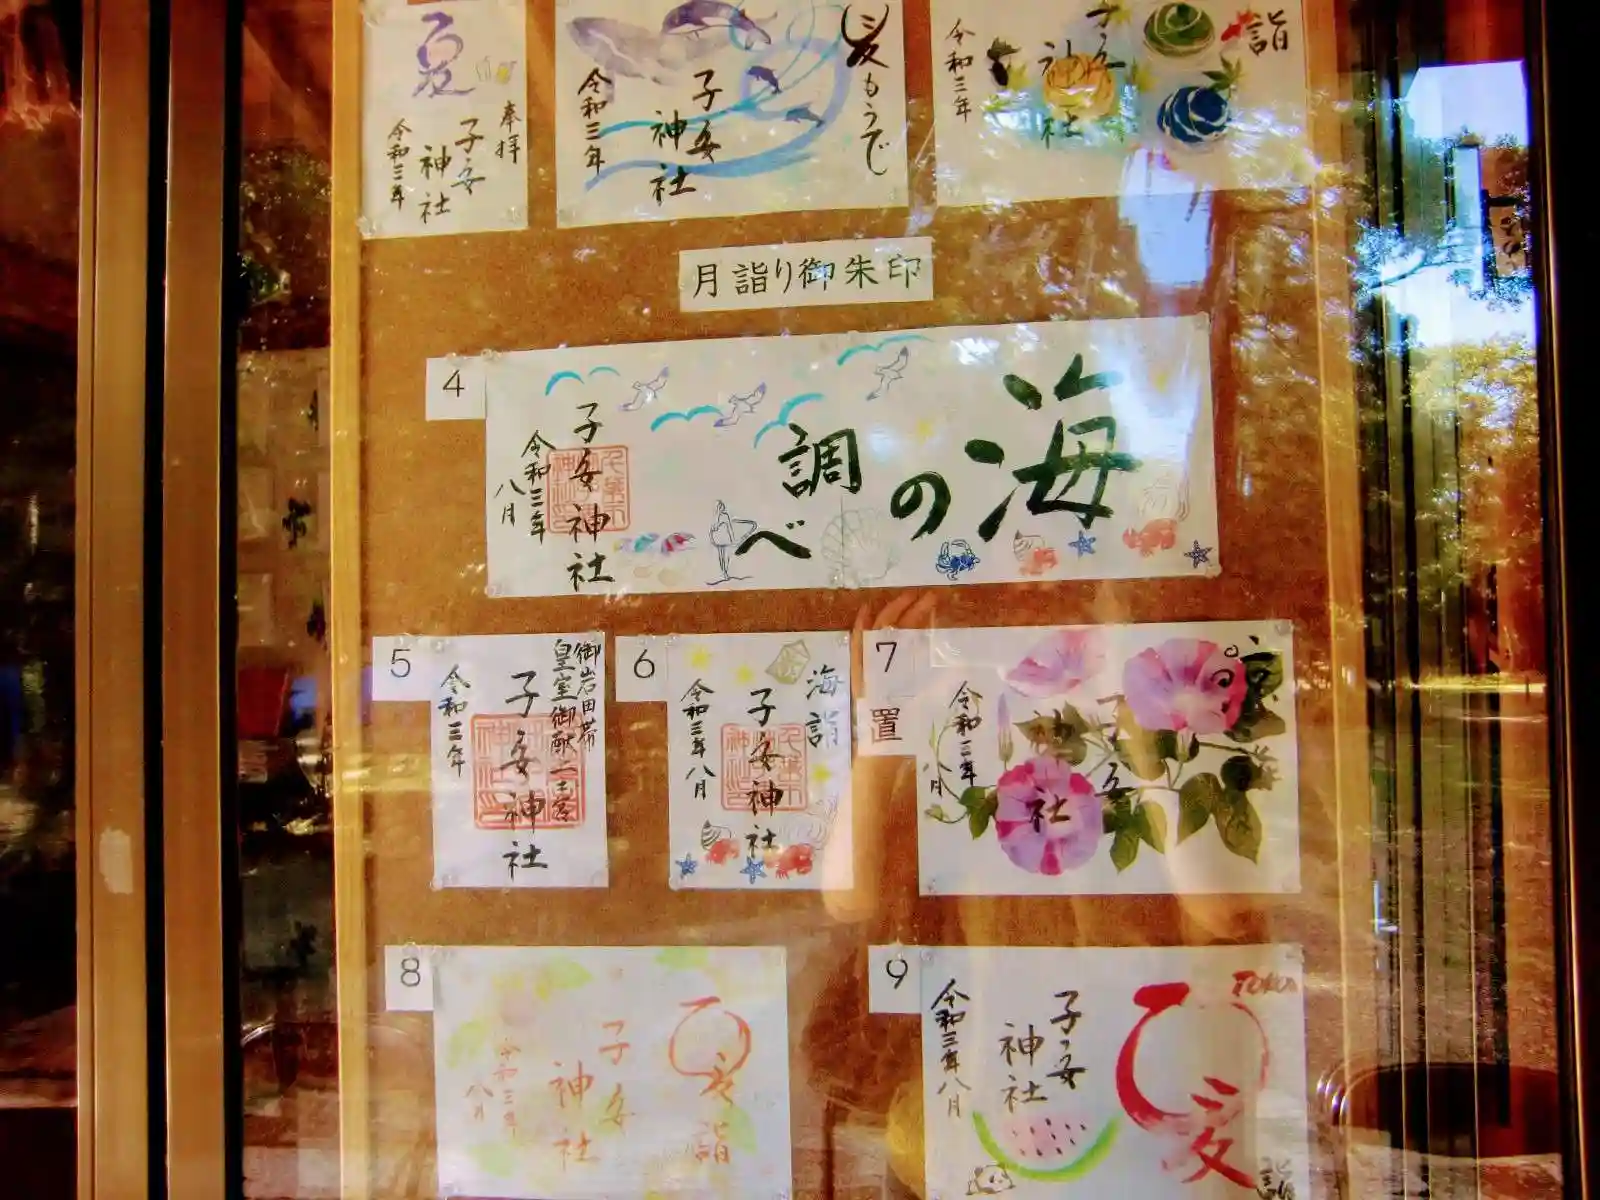 夏
奉拝
子安
神社
令和三年
夏もうで
子安
神社
令和三年
詣
子安
神社
令和三年
月詣り御朱印
4
海の調べ
子安神社
令和三年
八月
5
御岩田帯
皇室御献上宮
子安神社
令和三年
6
海詣
子安神社
令和三年八月
7
置
子安
神社
令和三年
八月
8
夏詣
子安
神社
令和三年
八月
9
夏
詣
子安
神社
令和三年八月